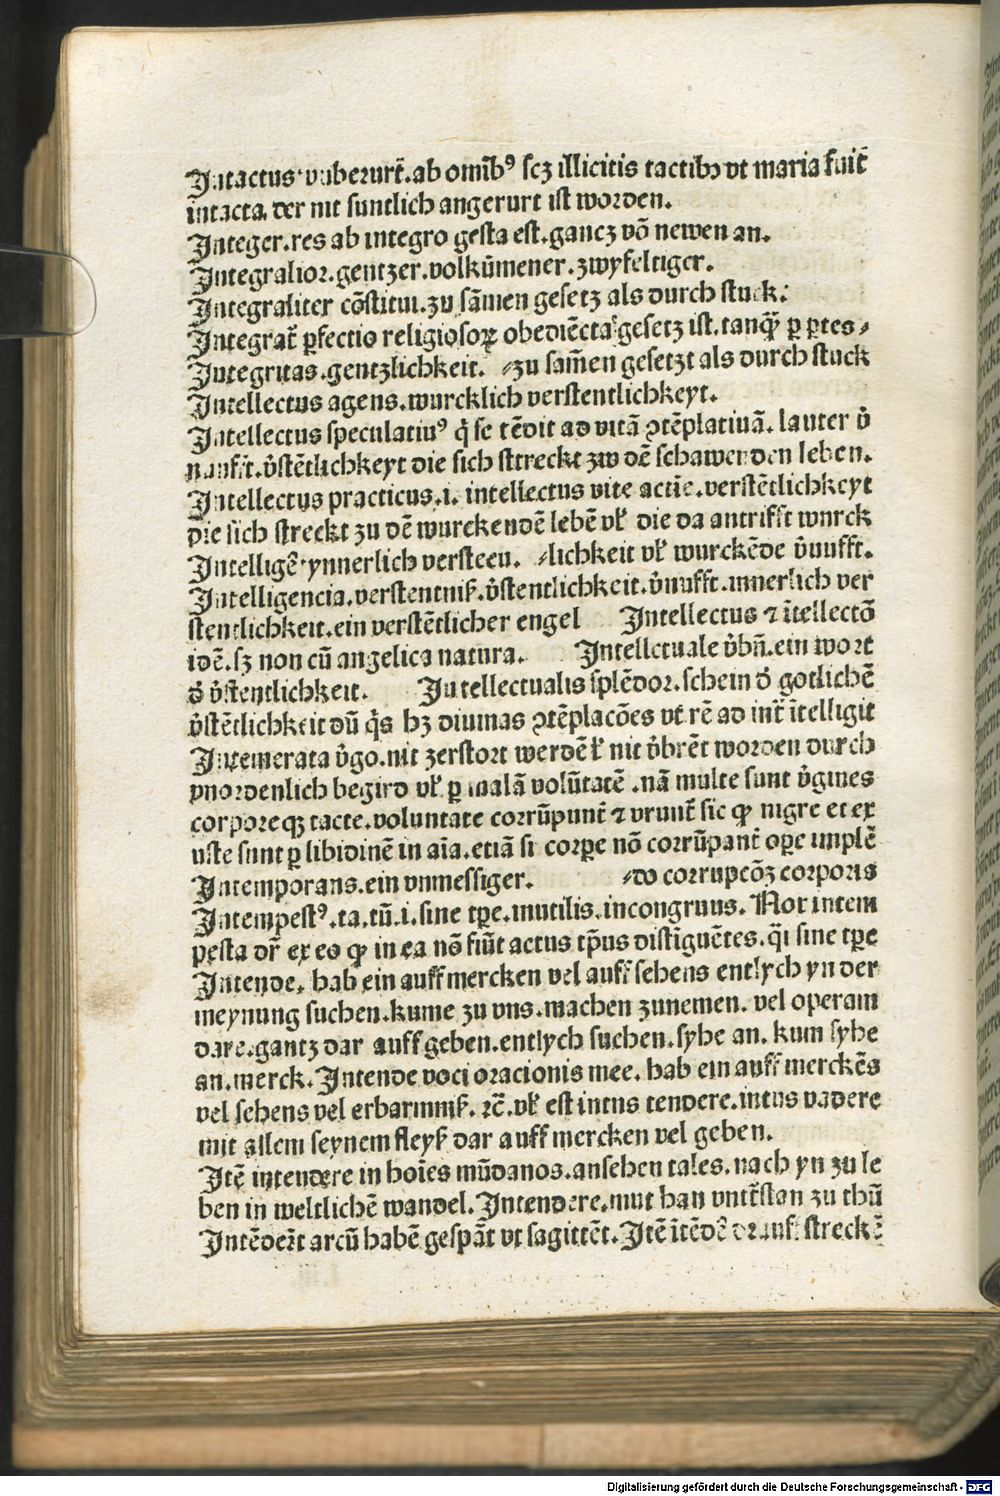 Intactus·vnberurt̃.ab omĩbꝰ ſcꝫ illicitis tactibꝫ vt maria fuit̃
intacta. der nit ſuntlich angerurt iſt worden.
Integer.res ab integro geſta eſt.gancz võ newen an.
Integralior.gentzer.volkũmener.zwyfeltiger.
Integraliter cõſtitui.zu ſãmen geſetz als durch ſtuck.
Integrat̃ ꝑfectio religioſoꝝ obediẽcta geſetz iſt.tanqᷓ ꝑ ꝑtes⸗
Integritas.gentzlichkeit. ⸗zu ſam̃en geſetzt als durch ſtuck
Intellectus agens.wurcklich verſtentlichkeyt.
Intellectus ſpeculatiuꝰ q̇ ſe tẽdit ad vitã ꝯtẽplatiuã. lauter v̉
nunfft.v̉ſtẽtlichkeyt die ſich ſtreckt zw dẽ ſchawenden leben.
Intellectus practicus.i. intellectus vite actiẽ.verſtẽtlichkeyt
die ſich ſtreckt zu dẽ wurckendẽ lebẽ vł die da antrifft wurck
Intelligẽ·ynnerlich verſteen. ⸗lichkeit vł wurckẽde v̉nufft.
Intelligencia.verſtentniß.v̉ſtentlichkeit.v̉nufft.innerlich ver
ſtentlichkeit.ein verſtẽtlicher engel Intellectus ⁊ ĩtellectõ
idẽ.ſꝫ non cũ angelica natura. Intellectuale v̉bũ.ein wort
d̉ v̉ſtentlichkeit. Intellectualis ſplẽdor.ſchein d̉ gotlichẽ
v̉ſtẽtlichkeit dũ q̇s hꝫ diuinas ꝯtẽplacões vt rẽ ad int̃ ĩtelligit
Intemerata v̉go.nit zerſtort werdẽ ł nit v̉brẽt worden durch
vnordenlich begird vł ꝑ malã volũtatẽ .nã multe ſunt v̉gines
corpore qꝫ tacte.voluntate corrũpunt̃ ⁊ vrunt̃ ſic ꝙ nigre et ex
uſte ſunt ꝑ libidinẽ in aĩa.etiã ſi corpe nõ corrũpant̃ oꝑe implẽ
Intemporans.ein vnmeſſiger. ⸗do corrupcõꝫ corporis
Intempeſtꝰ.ta.tũ.i.ſine tꝑe.inutilis.incongruus. Nox intem
peſta dr̃ ex eo ꝙ in ea nõ fiũt actus tp̃us diſtĩguẽtes.qᷓi ſine tꝑe
Intende. hab ein auff mercken vel auff ſehens entlych yn der
meynung ſuchen.kume zu vns.machen zunemen. vel operam
dare.gantz dar auff geben.entlych ſuchen.ſyhe an. kum ſyhe
an.merck. Intende voci oracionis mee. hab ein auff merckẽs
vel ſehens vel erbarmniß. ꝛc̃.vł eſt intus tendere.intus vadere
mit allem ſeynem fleyß dar auff mercken vel geben.
Itẽ intendere in hoĩes mũdanos.anſehen tales.nach yn zu le
ben in weltlichẽ wandel. Intendere.mut han vnt̃ſtan zu thũ
Intẽder̃t arcũ habẽ geſpãt vt ſagittẽt. Itẽ ĩtẽdẽ ſtreckẽ
Digitalisierung gefördert durch die Deutsche Forschungsgemeinschaft - DFG